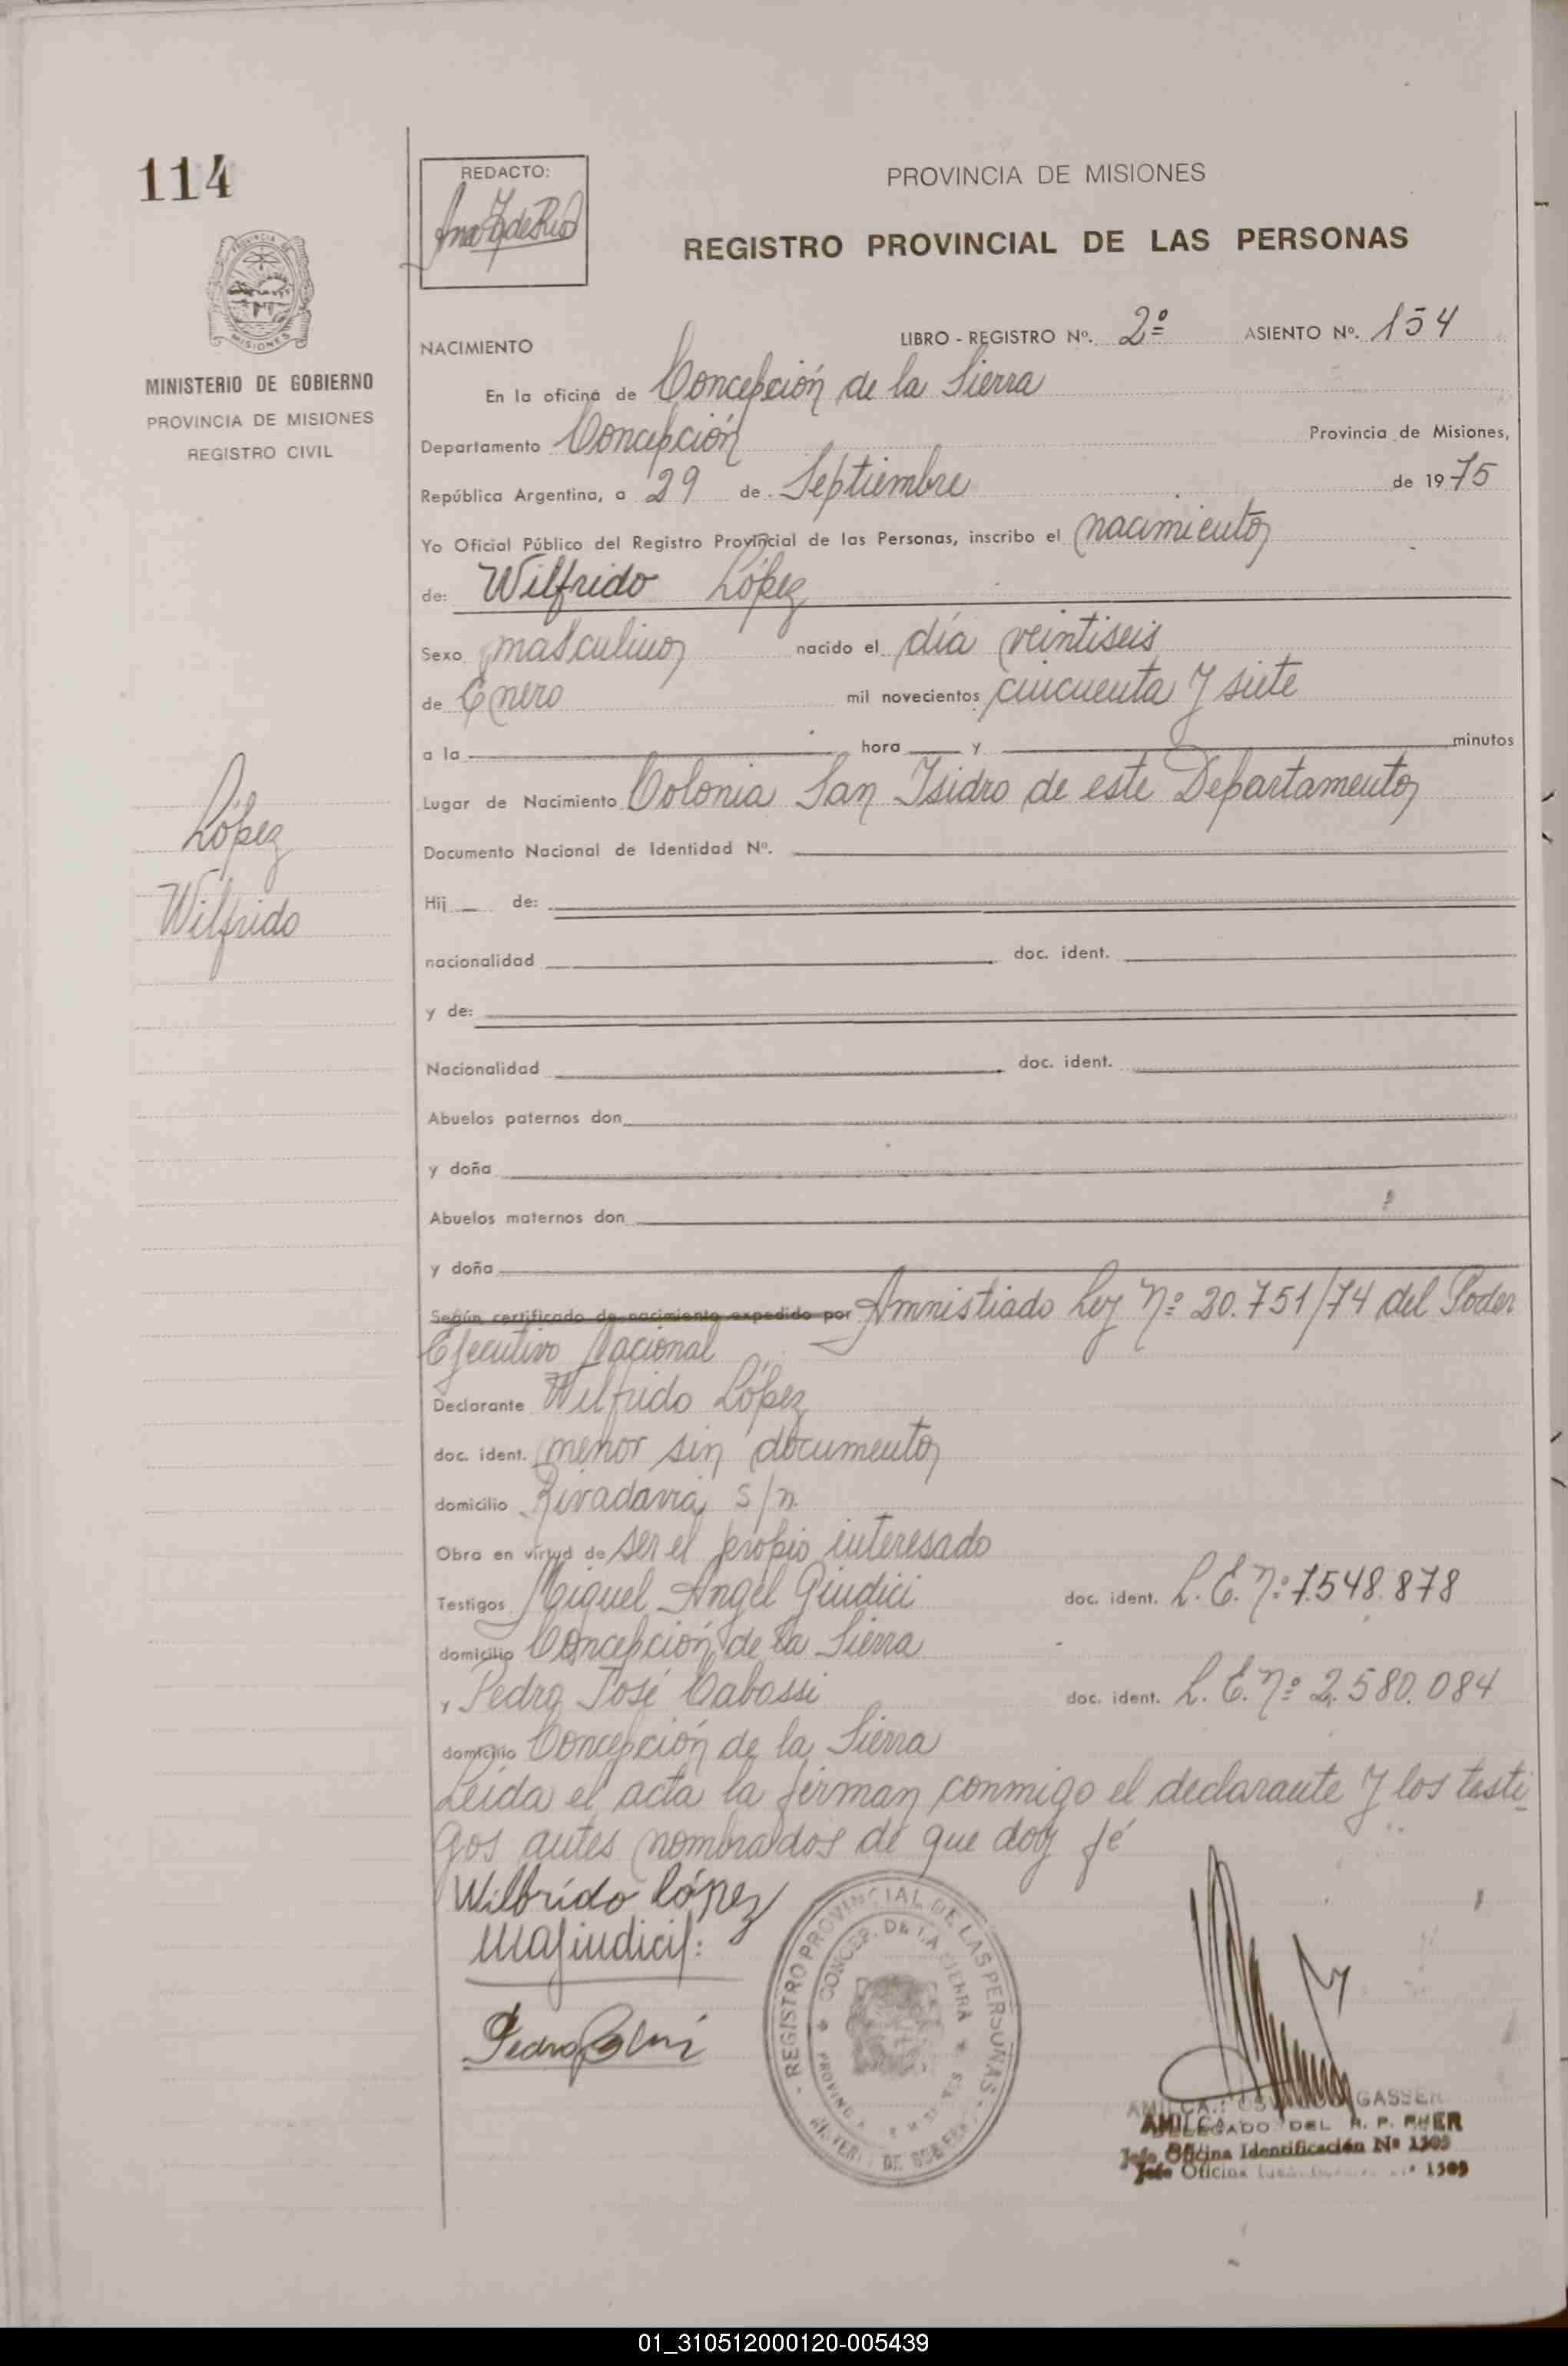 114
REDACTO:
PROVINCIA DE MISIONES
REGISTRO PROVINCIAL DE LAS PERSONAS
MINISTERIO DE GOBIERNO
PROVINCIA DE MISIONES
REGISTRO CIVIL
López
Wilfrido
NACIMIENTO
LIBRO - REGISTRO Nº. 2º ASIENTO Nº. 154
En la oficina de Concepción de la Sierra
Departamento Concepción Provincia de Misiones,
República Argentina, a 29 de Septiembre de 1975
Yo Oficial Público del Registro Provincial de las Personas, inscribo el nacimiento
de: Wilfrido López
Sexo masculino nacido el día veintiseis
de Enero mil novecientos cincuenta y siete
a la hora y minutos
Lugar de Nacimiento Colonia San Isidro de este Departamento
Documento Nacional de Identidad Nº.
Hij de:
nacionalidad doc. ident.
y de:
Nacionalidad doc. ident.
Abuelos paternos don
y doña
Abuelos maternos don
y doña
Según certificado de nacimiento expedido por Amnistiado Ley Nº 20.751/74 del Poder
Ejecutivo Nacional
Declarante Wilfrido López
doc. ident. menor sin documento
domicilio Rivadavia s/n
Obra en virtud de ser el propio interesado
Testigos Miguel Angel Giudici doc. ident. L.E. Nº 7.548.878
domicilio Concepción de la Sierra
y Pedro José Cabossi doc. ident. L.E. Nº 2.580.084
domicilio Concepción de la Sierra
Leída el acta la firman conmigo el declarante y los testi-
gos antes nombrados de que doy fé
Wilbrido lópez
MAGiudici
Pedro
REGISTRO PROVINCIAL DE LAS PERSONAS
CONCEP. DE LA SIERRA
GASSER
DELEGADO DEL R. P.
Jefe Oficina Identificación Nº 1509
Jefe Oficina 1509
01_310512000120-005439